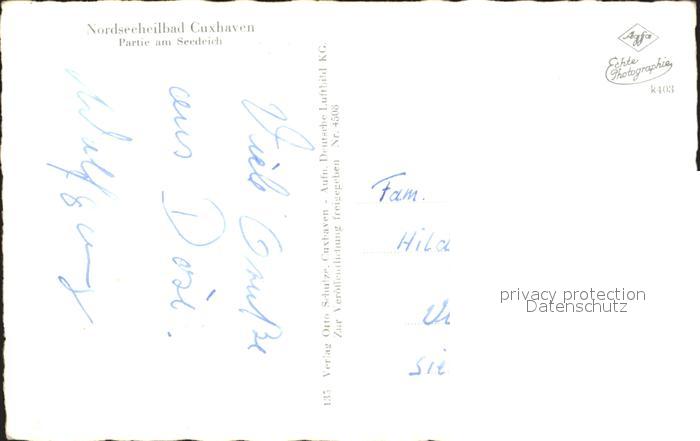 Nordseeheilbad Cuxhaven
Partie am Seedeich
Viele Grüße
aus Döse.
Wolfgang
135 Verlag Otto Schulze, Cuxhaven - Aufn. Deutsche Luftbild KG.
Zur Veröffentlichung freigegeben Nr. 4508
Agfa
Echte
Photographie
k403
Fam.
Hild
Sie
privacy protection
Datenschutz